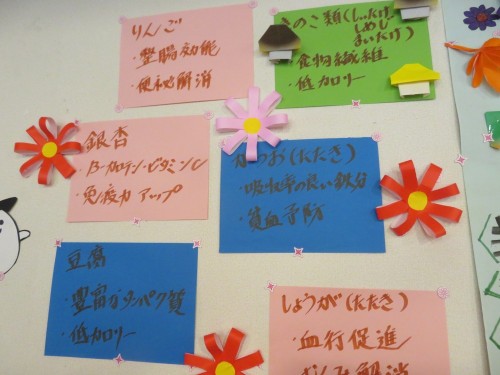 りんご
・整腸効能
・便秘解消
きのこ類(しいたけ
しめじ
まいたけ)
・食物繊維
・低カロリー
銀杏
・β-カロテン・ビタミンC
・免疫力アップ
かつお(たたき)
・吸収率の良い鉄分
・貧血予防
豆腐
・豊富なタンパク質
・低カロリー
しょうが(たたき)
・血行促進
・むくみ解消